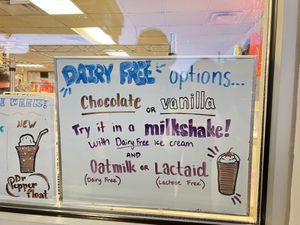 DAIRY FREE options...
Chocolate or vanilla
Try it in a milkshake!
with Dairy Free ice cream
AND
Oatmilk or Lactaid
(Dairy Free) (Lactose Free)
WEEK!
NEW
Dr Pepper Float